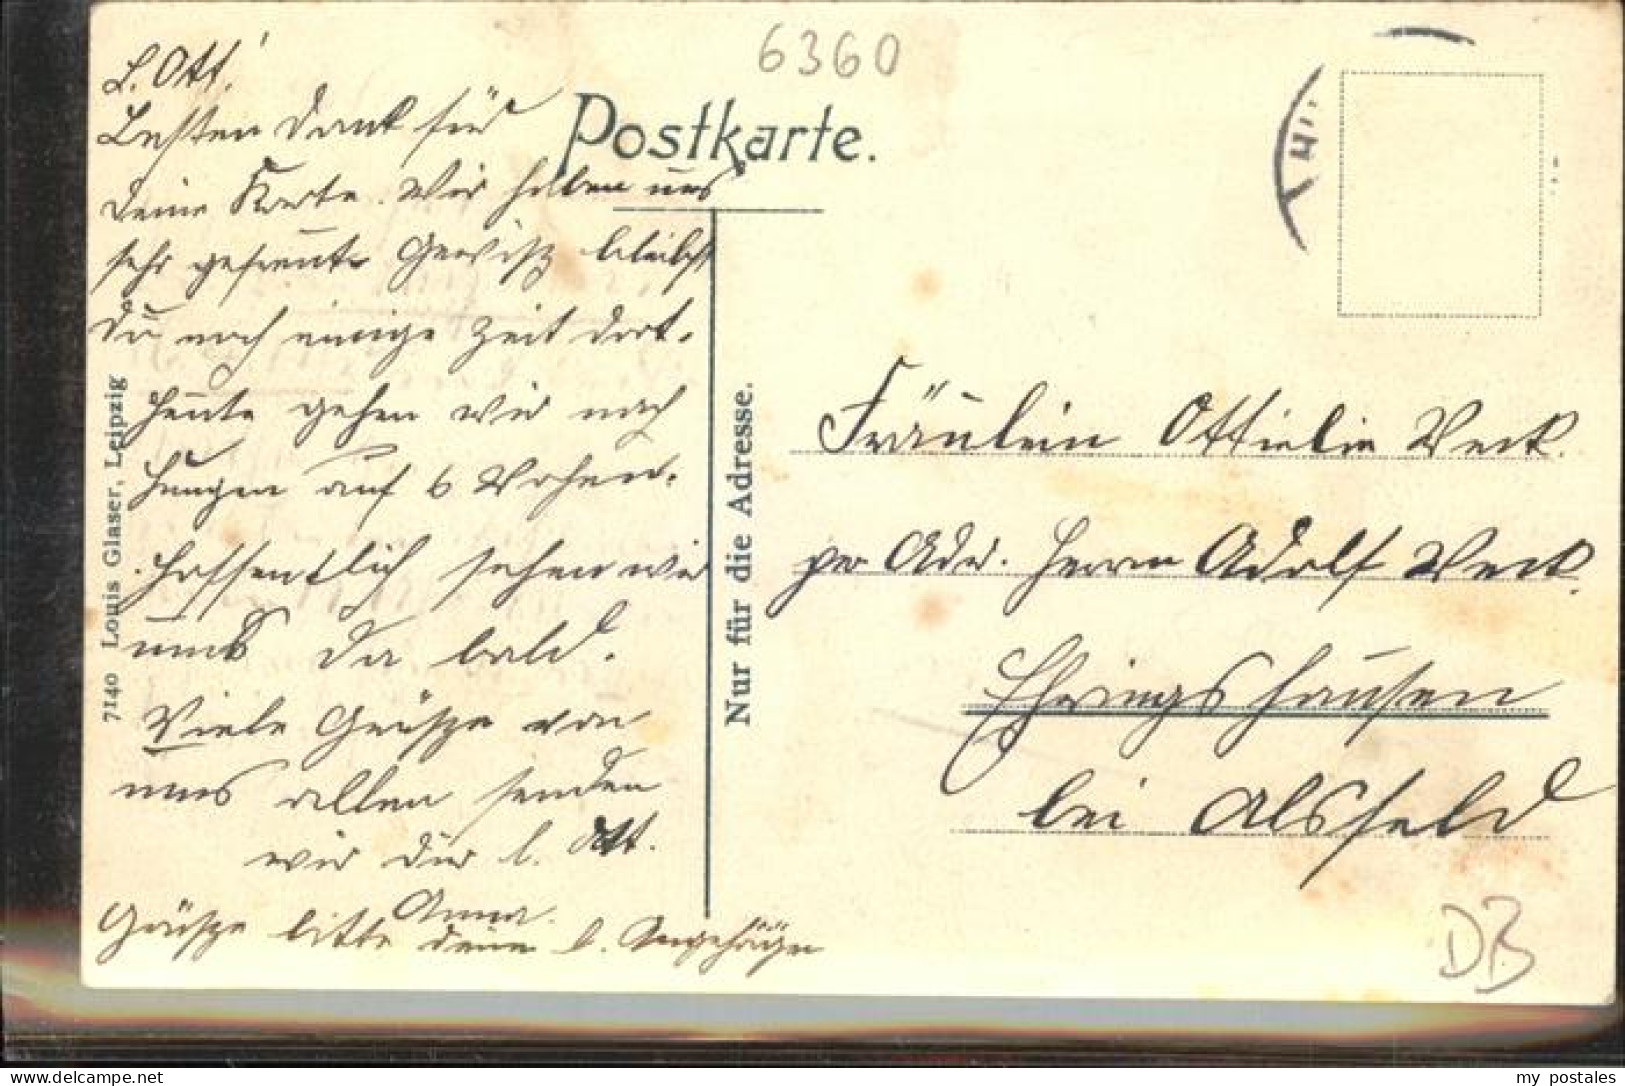 6360
Postkarte.
L. Ott!
Besten Dank für
deine Karte. Wir haben uns
sehr gefreut. Gewiß bleibst
du noch einige Zeit dort.
Heute gehen wir nach
Hungen auf 6 Wochen.
Hoffentlich sehen wir
uns da bald.
Viele Grüße von
uns allen senden
wir dir l. Ott.
Anna.
Grüße bitte deine l. Angehörige
7140 Louis Glaser, Leipzig
Nur für die Adresse.
Fräulein Ottielie Weck.
per Adr. Herrn Adolf Weck.
Ehringshausen
bei Alsfeld
DB
my postales
delcampe.net